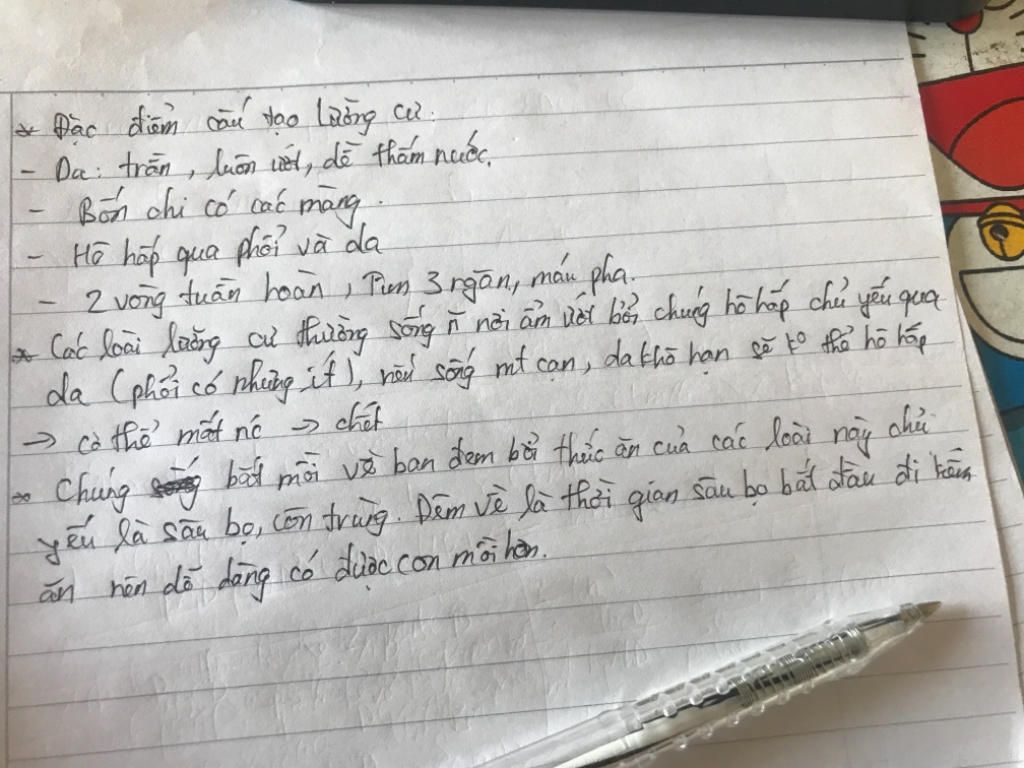 * Đặc điểm cấu tạo lưỡng cư:
- Da: trần, luôn ướt, dễ thấm nước.
- Bốn chi có các màng.
- Hô hấp qua phổi và da
- 2 vòng tuần hoàn, Tim 3 ngăn, máu pha.
* Các loài lưỡng cư thường sống ở nơi ẩm ướt bởi chúng hô hấp chủ yếu qua
da (phổi có nhưng ít), nếu sống mt cạn, da khô hạn sẽ ko thể hô hấp
→ có thể mất nc → chết
* Chúng bắt mồi về ban đêm bởi thức ăn của các loài này chủ
yếu là sâu bọ, côn trùng. Đêm về là thời gian sâu bọ bắt đầu đi kiếm
ăn nên dễ dàng có được con mồi hơn.